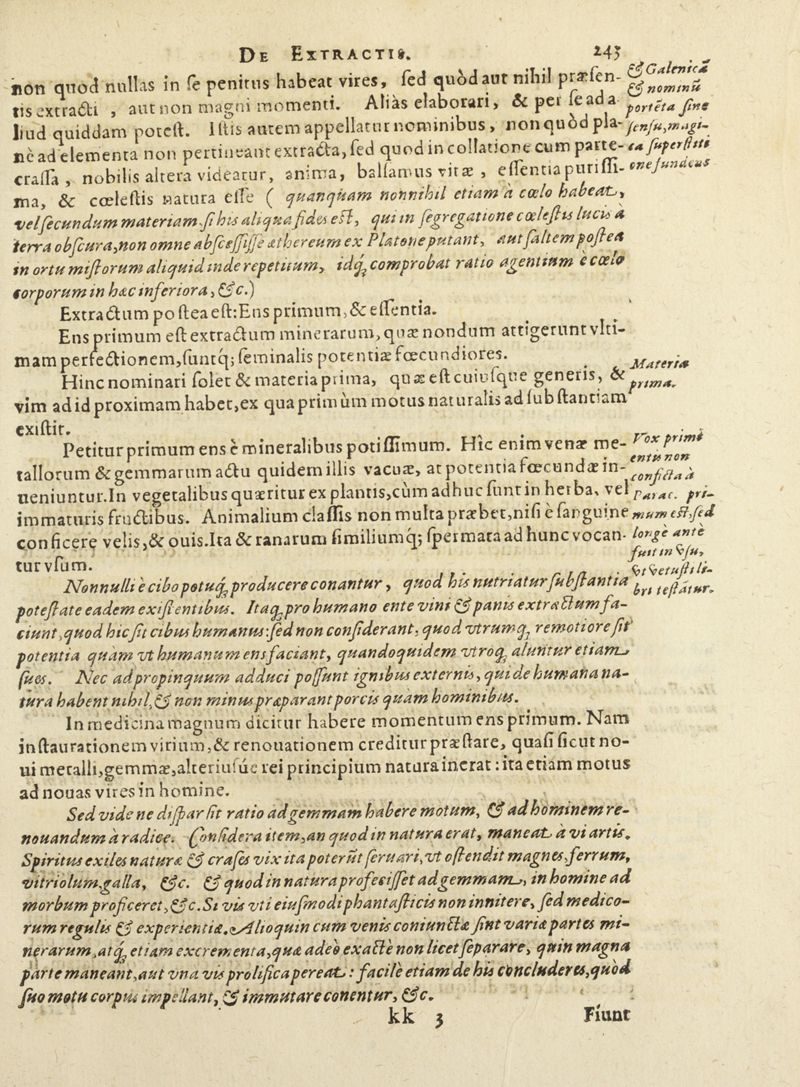 De Extractis. 245
non quod nullas in se penitus habeat vires, sed quòd aut nihil præsen-
tis extracti , aut non magni momenti. Aliàs elaborari, & per se ad a-
liud quiddam potest. Istis autem appellatur nominibus, non quòd pla-
nè ad elementa non pertineant extracta, sed quod in collatione cum parte
crassa , nobilis altera videatur, anima, balsamus vitæ , essentia purissi-
ma, & cœlestis natura esse ( quanquam nonnihil etiam à cœlo habeat,
vel secundum materiam, si his aliqua fides est, qui in segregatione cœlestis lucis à
terra obscura, non omne abscessisse æthereum ex Platone putant, aut saltem postea
in ortu mistorum aliquid inde repetitum, idq; comprobat ratio agentium è cœlo
corporum in hæc inferiora, &c.)
Extractum postea est: Ens primum, & essentia.
Ens primum est extractum minerarum, quæ nondum attigerunt vlti-
mam perfectionem, suntq; seminalis potentiæ fœcundiores.
Hinc nominari solet & materia prima, quæ est cuiusque generis, &
vim ad id proximam habet, ex qua primùm motus naturalis ad substantiam
existit.
Petitur primum ens è mineralibus potissimum. Hic enim venæ me-
tallorum & gemmarum actu quidem illis vacuæ, at potentia fœcundæ in-
ueniuntur. In vegetalibus quæritur ex plantis, cùm adhuc sunt in herba, vel
immaturis fructibus. Animalium classis non multa præbet, nisi è sanguine
conficere velis, & ouis. Ita & ranarum similiumq; spermata ad hunc vocan-
tur vsum.
Nonnulli è cibo potuq; producere conantur, quod his nutriatur substantia
potestate eadem existentibus. Itaq; pro humano ente vini & panis extractum fa-
ciunt, quod hic sit cibus humanus: sed non considerant, quod vtrumq; remotiore sit
potentia quàm vt humanum ens faciant, quandoquidem vtroq; aluntur etiam
sues. Nec ad propinquum adduci possunt ignibus externis, qui de humana na-
tura habent nihil, & non minus præparant porcis quàm hominibus.
In medicina magnum dicitur habere momentum ens primum. Nam
instaurationem virium, & renouationem creditur præstare, quasi sicut no-
ui metalli, gemmæ, alteriusúe rei principium natura inerat: ita etiam motus
ad nouas vires in homine.
Sed vide ne dispar sit ratio ad gemmam habere motum, & ad hominem re-
nouandum à radice. Considera item, an quod in natura erat, maneat à vi artis.
Spiritus exiles naturæ & crasis vix ita poterũt seruari, vt ostendit magnes, ferrum,
vitriolum, galla, &c. & quod in natura profecisset ad gemmam, in homine ad
morbum proficeret, &c. Si vis vti eiusmodi phantasticis non innitere, sed medico-
rum regulis & experientiæ. Alioquin cum venis coniunctæ sint variæ partes mi-
nerarum, atq; etiam excrementa, quæ adeò exactè non licet separare, quin magna
parte maneant, aut vna vis prolifica pereat: facile etiam de his concluderes, quòd
suo motu corpus impellant, & immutare conentur, &c.
kk 3 Fiunt
& Galenica
& nominũ
portēta sine
sensu, magi-
ca superstiti
one fundatus
Materia
prima.
Vox primi
entis non
conficta à
Parac. pri-
mum est, sed
longè ante
fuit in vsu,
vt vetusti li-
bri testātur.